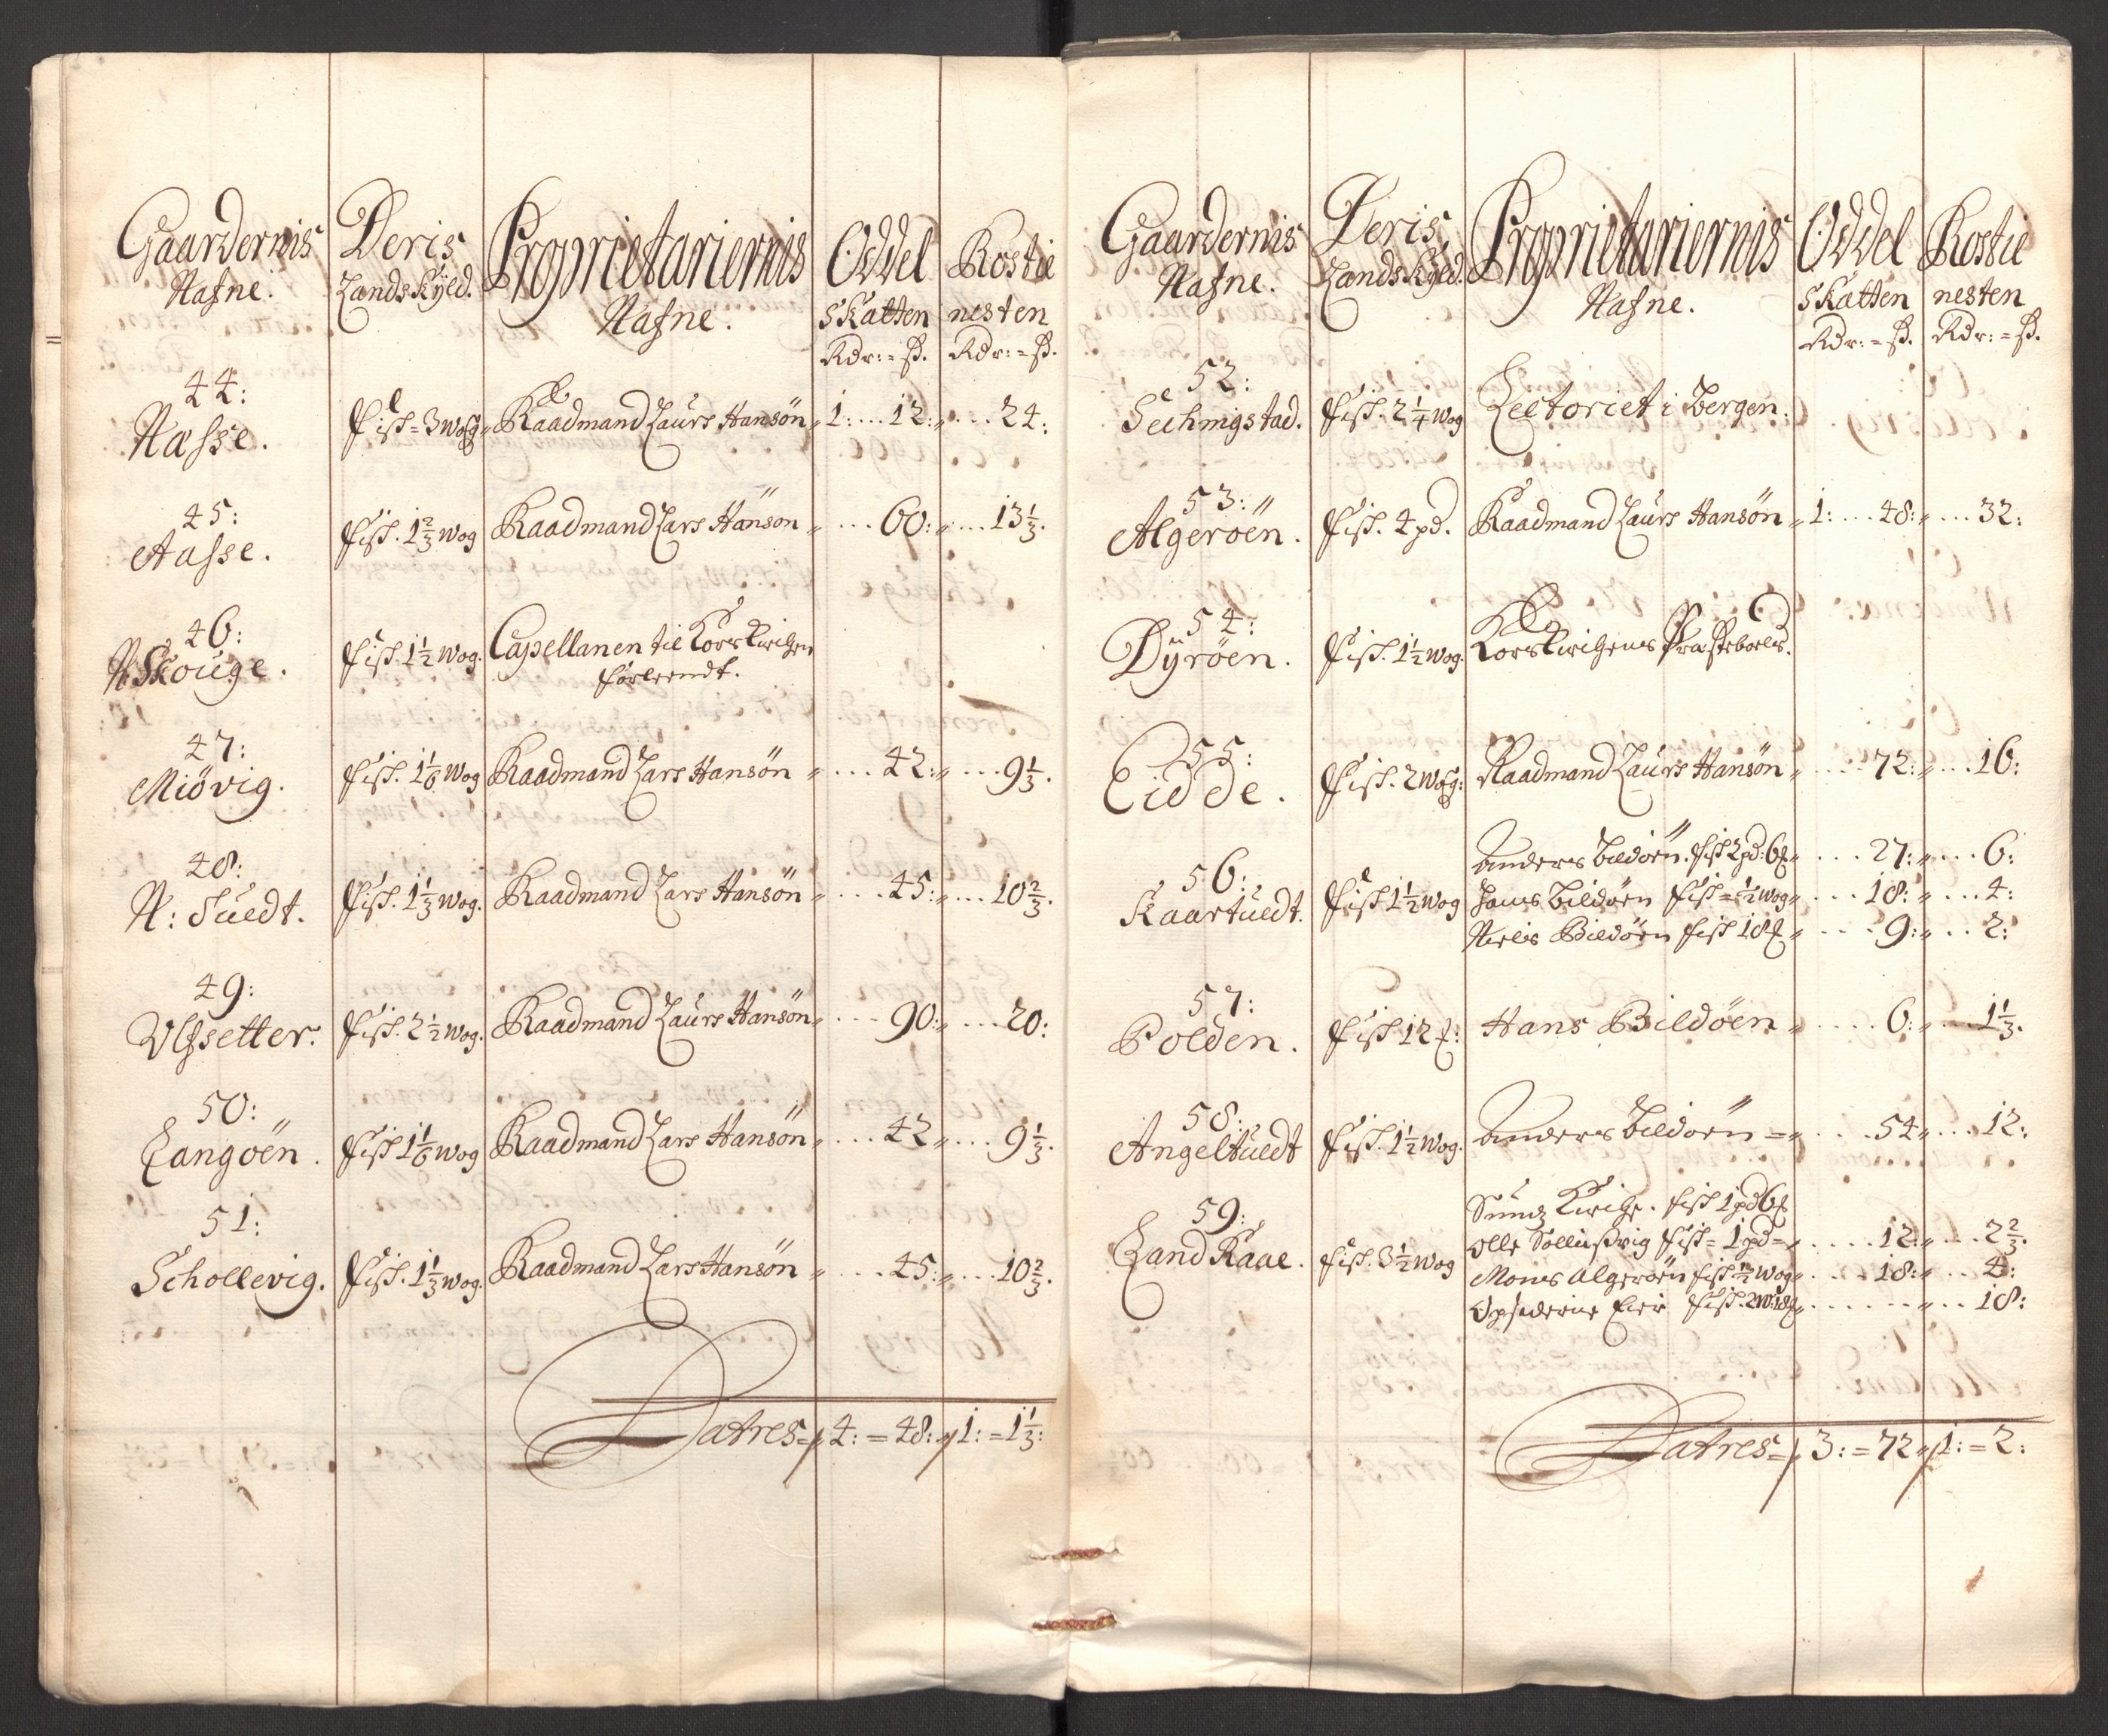 Gaardernis Nafne. Deris Landskÿld. Proprietariernis Nafne. Oddel Skatten Rdr: = ß. Rostie nesten Rdr: = ß.
44:
Næsse. fisk = 3 wog " Raadmand Laurs Hansön " 1: ... 12: " ... 24:
45:
Aasse. fisk. 1 2/3 wog Raadmand Lars Hanson " ... 60: " ... 13 1/3.
46:
N. Skouge. fisk 1 1/2 wog. Capellanen til Kors Kirchen
forlerendt.
47:
Miövig. fisk. 1 1/6 Wog Raadmand Lars Hansön " ... 42: " ... 9 1/3.
48:
N: Tuedt. fisk. 1 1/3 wog. Raadmand Lars Hansön " ... 45: " ... 10 2/3.
49:
Ulfsetter. fisk. 2 1/2 wog. Raadmand Laurs Hansön " ... 90: " ... 20:
50:
Langöen. fisk 1 1/6 wog Raadmand Lars Hansön " ... 42 " ... 9 1/3.
51:
Schollevig. fisk. 1 1/3 wog. Raadmand Lars Hansön " ... 45: " ... 10 2/3.
Latres = 4: = 48: " 1: = 1 1/3:
Gaardernis Nafne. Deris Landskÿld. Proprietariernis Nafne. Oddel Skatten Rdr: = ß. Rostie nesten Rdr: = ß.
52:
Sechingstad. fisk. 2 1/4 wog Lectoriet i Bergen.
53:
Algeröen. fisk. 4 pd. Raadmand Laurs Hansön " 1: ... 48: " ... 32:
54:
Dÿröen. fisk. 1 1/2 wog. Kors Kirchens Præsteboels.
55:
Eidde. fisk. 2 wog: Raadmand Laurs Hansön " ... 72: " ... 16:
56:
Kaartuedt. fisk 1 1/2 wog
Anders Bildöen. fisk 2 pd: 6 " ... 27: " ... 6:
Hans Bildöen fisk = 1/2 wog " ... 18: " ... 4:
Nielis Bildöen fisk 18 " ... 9: " ... 2:
57:
Polden. fisk 12 Hans Bildöen " ... 6: " ... 1 1/3.
58:
Angeltuedt fisk. 1 1/2 wog. Anders Bildöen = " ... 54 " ... 12:
59:
Land Raae. fisk. 3 1/2 wog
Sunds Kirche. fisk 1 pd 6
Olle Sollesvig fisk = 1 pd = " ... 12: " ... 2 2/3.
Mons Algeröen fisk 1/2 wog " ... 18: " ... 4:
Opsiderne Eier fisk. 2 W: 18 " ... " ... 18:
Latres = 3: = 72 " 1: = 2: